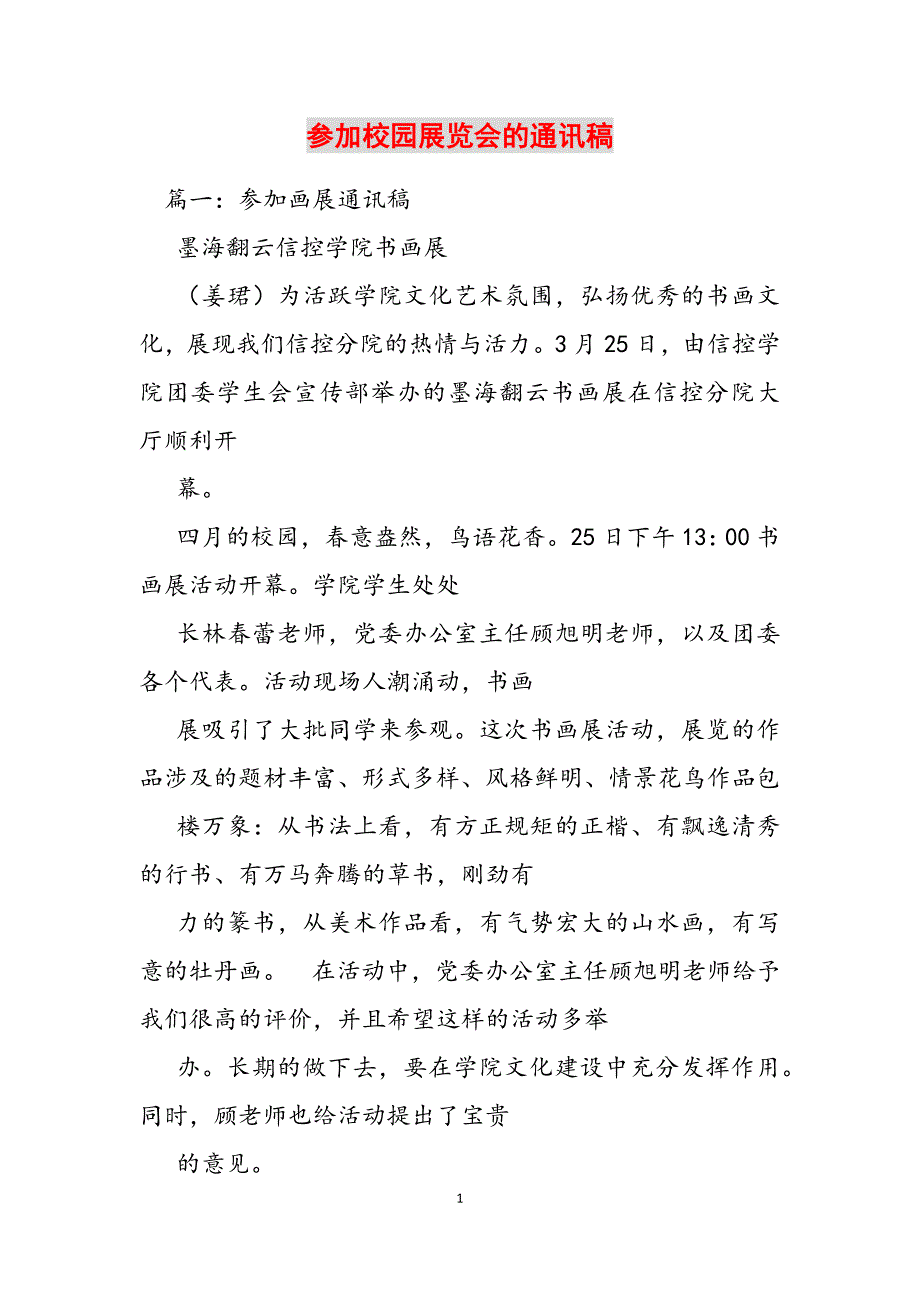 参加校园展览会的通讯稿
篇一：参加画展通讯稿
墨海翻云信控学院书画展
（姜珺）为活跃学院文化艺术氛围，弘扬优秀的书画文
化，展现我们信控分院的热情与活力。3 月 25 日，由信控学
院团委学生会宣传部举办的墨海翻云书画展在信控分院大
厅顺利开
幕。
四月的校园，春意盎然，鸟语花香。25 日下午 13：00 书
画展活动开幕。学院学生处处
长林春蕾老师，党委办公室主任顾旭明老师，以及团委
各个代表。活动现场人潮涌动，书画
展吸引了大批同学来参观。这次书画展活动，展览的作
品涉及的题材丰富、形式多样、风格鲜明、情景花鸟作品包
楼万象：从书法上看，有方正规矩的正楷、有飘逸清秀
的行书、有万马奔腾的草书，刚劲有
力的篆书，从美术作品看，有气势宏大的山水画，有写
意的牡丹画。 在活动中，党委办公室主任顾旭明老师给予
我们很高的评价，并且希望这样的活动多举
办。长期的做下去，要在学院文化建设中充分发挥作用。
同时，顾老师也给活动提出了宝贵
的意见。
1